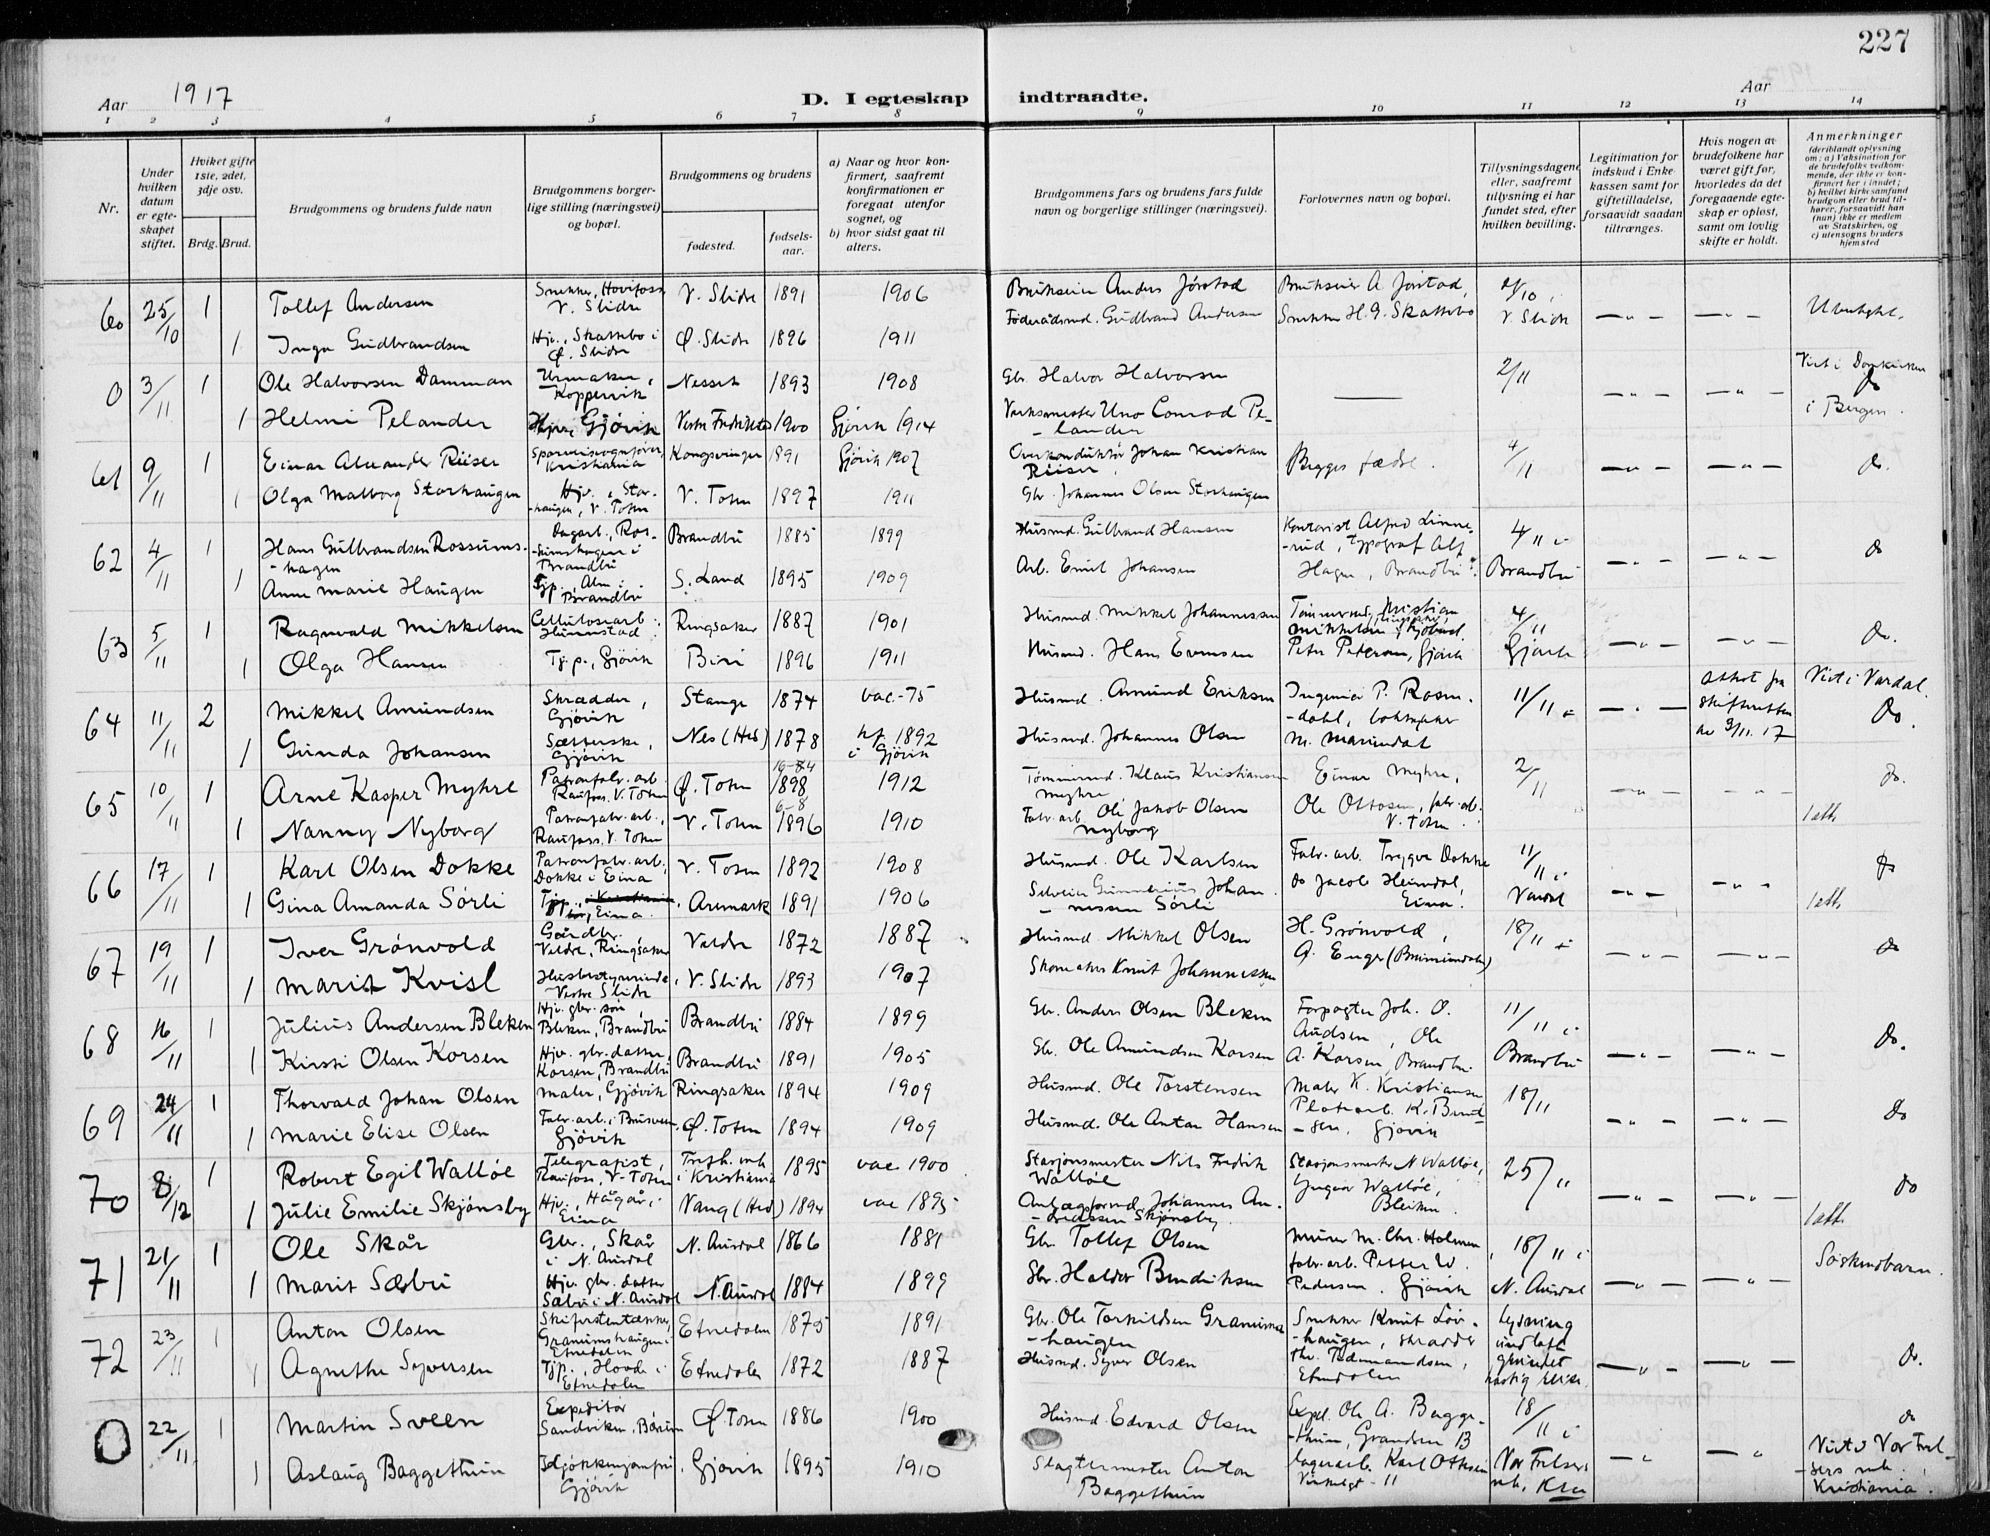 227
Aar 1917
D. I egteskap indtraadte.
Aar
1 2 3 4 5 6 7 8 9 10 11 12 13 14
Nr.
Under hvilken datum er egteskapet stiftet.
Hvilket gifte 1ste, 2det, 3dje osv.
Brdg. Brud.
Brudgommens og brudens fulde navn
Brudgommens borgerlige stilling (næringsvei) og bopæl.
Brudgommens og brudens
fødested.
fødselsaar.
a) Naar og hvor konfirmert, saafremt konfirmationen er foregaat utenfor sognet, og
b) hvor sidst gaat til alters.
Brudgommens fars og brudens fars fulde navn og borgerlige stillinger (næringsvei).
Forlovernes navn og bopæl.
Tillysningsdagene eller, saafremt tillysning ei har fundet sted, efter hvilken bevilling.
Legitimation for indskud i Enkekassen samt for giftetilladelse, forsaavidt saadan tiltrænges.
Hvis nogen av brudefolkene har været gift før, hvorledes da det foregaaende egteskap er opløst, samt om lovlig skifte er holdt.
Anmerkninger
(deriblandt oplysning om: a) Vaksination for de brudefolks vedkommende, der ikke er konfirmert her i landet; b) hvilket kirkesamfund brudgom eller brud tilhører, forsaavidt han (hun) ikke er medlem av Statskirken, og c) utensogns bruders hjemsted
60 25/10 1 Tollef Andersen Snekker, V. Slidre V. Slidre 1891 1906 Anders Jørstad A. Jørstad, V. Slidre
1 Inga Gudbrandsen Hjv., Skattebo i Ø. Slidre Ø. Slidre 1896 1911 Gudbrand Andersen Snekker H. G. Skattebo
0 3/11 1 Ole Halvorsen Damman Urmaker, Koppervik Nesset 1893 1908 Gbr. Halvor Halvorsen 2/11 Viet i Domkirken i Bergen.
1 Helmi Pelander Hjv., Gjøvik 1900 Gjøvik 1914 Verksmester Uno Conrad Pelander
61 9/11 1 Einar Alexander Riiser Kristiania Kongsvinger 1891 Gjøvik 1907 Overkonduktør Johan Kristian Riiser Begges fædre. 4/11 do.
1 Olga Malborg Storhaugen Hjv., Storhaugen, V. Toten V. Toten 1897 1911 Gbr. Johannes Olsen Storhaugen
62 4/11 1 Hans Gulbrandsen Rossumshagen Dagarb., Rossumshagen i Brandbu Brandbu 1885 1899 Husmd. Gulbrand Hansen Kontorist Alfred Linnerud, typograf Alf Hagen, Brandbu. 4/11 i Brandbu do
1 Anne Marie Haugen Tjp., Alm i Brandbu S. Land 1895 1909 Arb. Emil Johansen
63 5/11 1 Ragnvald Mikkelsen Cellulosearb. Hunnstad Ringsaker 1887 1901 Husmd. Mikkel Johannessen Tømmermd. Kristian Mikkelsen 4/11 Gjøvik do.
1 Olga Hansen Tj.p., Gjøvik Biri 1896 1911 Husmd. Hans Evensen Peter Pedersen, Gjøvik
64 11/11 2 Mikkel Amundsen Skrædder, Gjøvik Stange 1874 vac. 75 Husmd. Amund Eriksen Ingeniør P. Rosendahl, M. Mariendal 11/11 Attest fra skifteretten av 9/11. 17 Viet i Vardal. do.
1 Gunda Johansen Gjøvik Nes (Hed) 1878 kf 1892 i Gjøvik Husmd. Johannes Olsen
65 10/11 1 Arne Kasper Myhre Patronfabr. arb. Raufoss. V. Toten Ø. Toten 16-84 1898 1912 Tømmermd. Klaus Kristiansen Myhre Einar Myhre, 2/11 do.
1 Nanny Nyborg Patronfabr. arb., Raufoss, V. Toten V. Toten 6-8 1896 1910 Fabr. arb. Ole Jakob Olsen Nyborg Ole Ottosen, fabr. arb. V. Toten 1 att.
66 17/11 1 Karl Olsen Dokke Patronfabr. arb. Dokke i Eina V. Toten 1892 1908 Husmd. Ole Karlsen Fabr. arb. Trygve Dokke 11/11 i Vardal do
1 Gina Amanda Sörli Tjp., Eina. Aremark 1891 1906 Selveier Gunnerius Johannessen Sörli do Jacob Heimdal, Eina 1 att.
67 19/11 1 Iver Grönvold Gårdbr. Veldre, Ringsaker Veldre 1872 1887 Husmd. Mikkel Olsen H. Grönvold, A. Enger 18/11 do
1 Marit Kvisl Husbestyrerinde Vestre Slidre V. Slidre 1893 1907 Skomaker Knut Johannessen
68 16/11 1 Julius Andersen Bleken Hjv. gbr. søn Bleken, Brandbu Brandbu 1884 1899 Gbr. Anders Olsen Bleken Forpagter Joh. O. Audsen, Ole A. Korsen, Brandbu 11/11 i Brandbu do.
1 Kirsti Olsen Korsen Hjv. gbr. datter, Korsen, Brandbu Brandbu 1891 1905 Gbr. Ole Amundsen Korsen
69 24/11 1 Thorvald Johan Olsen Maler, Gjøvik Ringsaker 1894 1909 Husmd. Ole Torstensen Maler K. Kristiansen 18/11 do
1 Marie Elise Olsen Gjøvik Ø. Toten 1894 1909 Husmd. Ole Anton Hansen Gjøvik
70 8/12 1 Robert Egil Walløe Telegrafist, Raufoss, V. Toten i Kristiania 1895 vac 1900 Stasjonsmester Nils Fredrik Walløe Stasjonsmester N. Walløe, Yngvar Walløe, Bleiken. 25/11 do
1 Julie Emilie Skjønsby Hjv., Hågår i Eina Vang (Hed) 1894 vac 1895 Johannes Andreassen Skjønsby 1 att.
71 21/11 1 Ole Skår Gbr., Skår i N. Aurdal N. Aurdal 1866 1881 Gbr. Tollef Olsen Murer M. Chr. Holmen, fabr. arb. Petter W. Pedersen, Gjøvik 18/11 i N. Aurdal Søskendbarn.
1 Marit Sæbu Hjv. gbr. datter Sæbu i N. Aurdal N. Aurdal 1884 1899 Gbr. Haldor Bendriksen
72 23/11 1 Anton Olsen Granumshaugen i Etnedalen Etnedalen 1875 1891 Gbr. Ole Torkildsen Granumshaugen Snekker Knut Löv-haugen, skrædder Etnedalen Lysning undlatt grundet hastig reise. do.
1 Agnethe Syversen Tjp., Hovde i Etnedalen Etnedalen 1872 1887 Husmd. Syver Olsen
0 22/11 1 Martin Sveen Expeditør Sandviken, Bærum Ø. Toten 1886 1900 Husmd. Edvard Olsen Expl. Ole A. Baggethun, Grandsen 13 18/11 i Vor Frelsers mk. Kra do
1 Aslaug Baggethun Gjøvik Gjøvik 1895 1910 Slagtermester Anton Baggethun Lagerarb. Karl Ottesen Viet i Vor Frelsers mk. Kristiania.